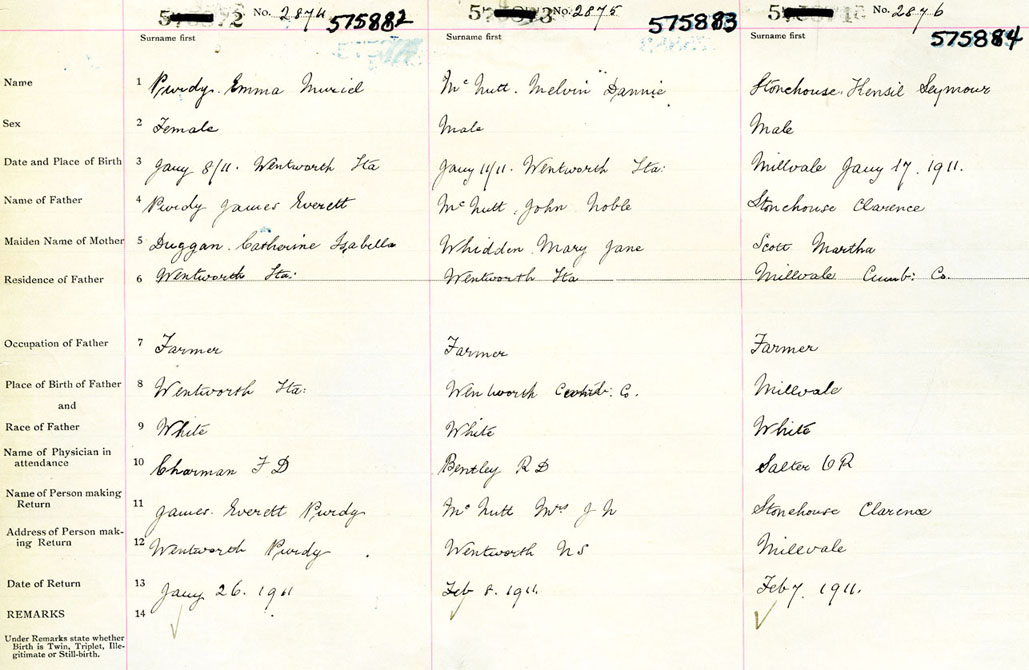 No. 2874 575882 No. 2875 575883 No. 2876 575884
Surname first Surname first Surname first
Name 1 Purdy. Emma Muriel McNutt. Melvin Dannie Stonehouse. Hensil Seymour
Sex 2 Female Male Male
Date and Place of Birth 3 Jany 8/11. Wentworth Sta Jany 11/11. Wentworth Sta: Millvale Jany 17. 1911.
Name of Father 4 Purdy James Everett McNutt. John Noble Stonehouse Clarence
Maiden Name of Mother 5 Duggan. Catherine Isabella Whidden Mary Jane Scott Martha
Residence of Father 6 Wentworth Sta: Wentworth Sta Millvale Cumb: Co.
Occupation of Father 7 Farmer Farmer Farmer
Place of Birth of Father 8 Wentworth Sta: Wentworth Cumb: Co. Millvale
and
Race of Father 9 White White White
Name of Physician in
attendance 10 Charman F D Bentley R D Salter
Name of Person making
Return 11 James. Everett Purdy McNutt Mrs J N Stonehouse Clarence
Address of Person mak-
ing Return 12 Wentworth Purdy Wentworth NS Millvale
Date of Return 13 Jany 26. 1911 Feb 8. 1911. Feb 7. 1911.
REMARKS 14
Under Remarks state whether
Birth is Twin, Triplet, Ille-
gitimate or Still-birth.